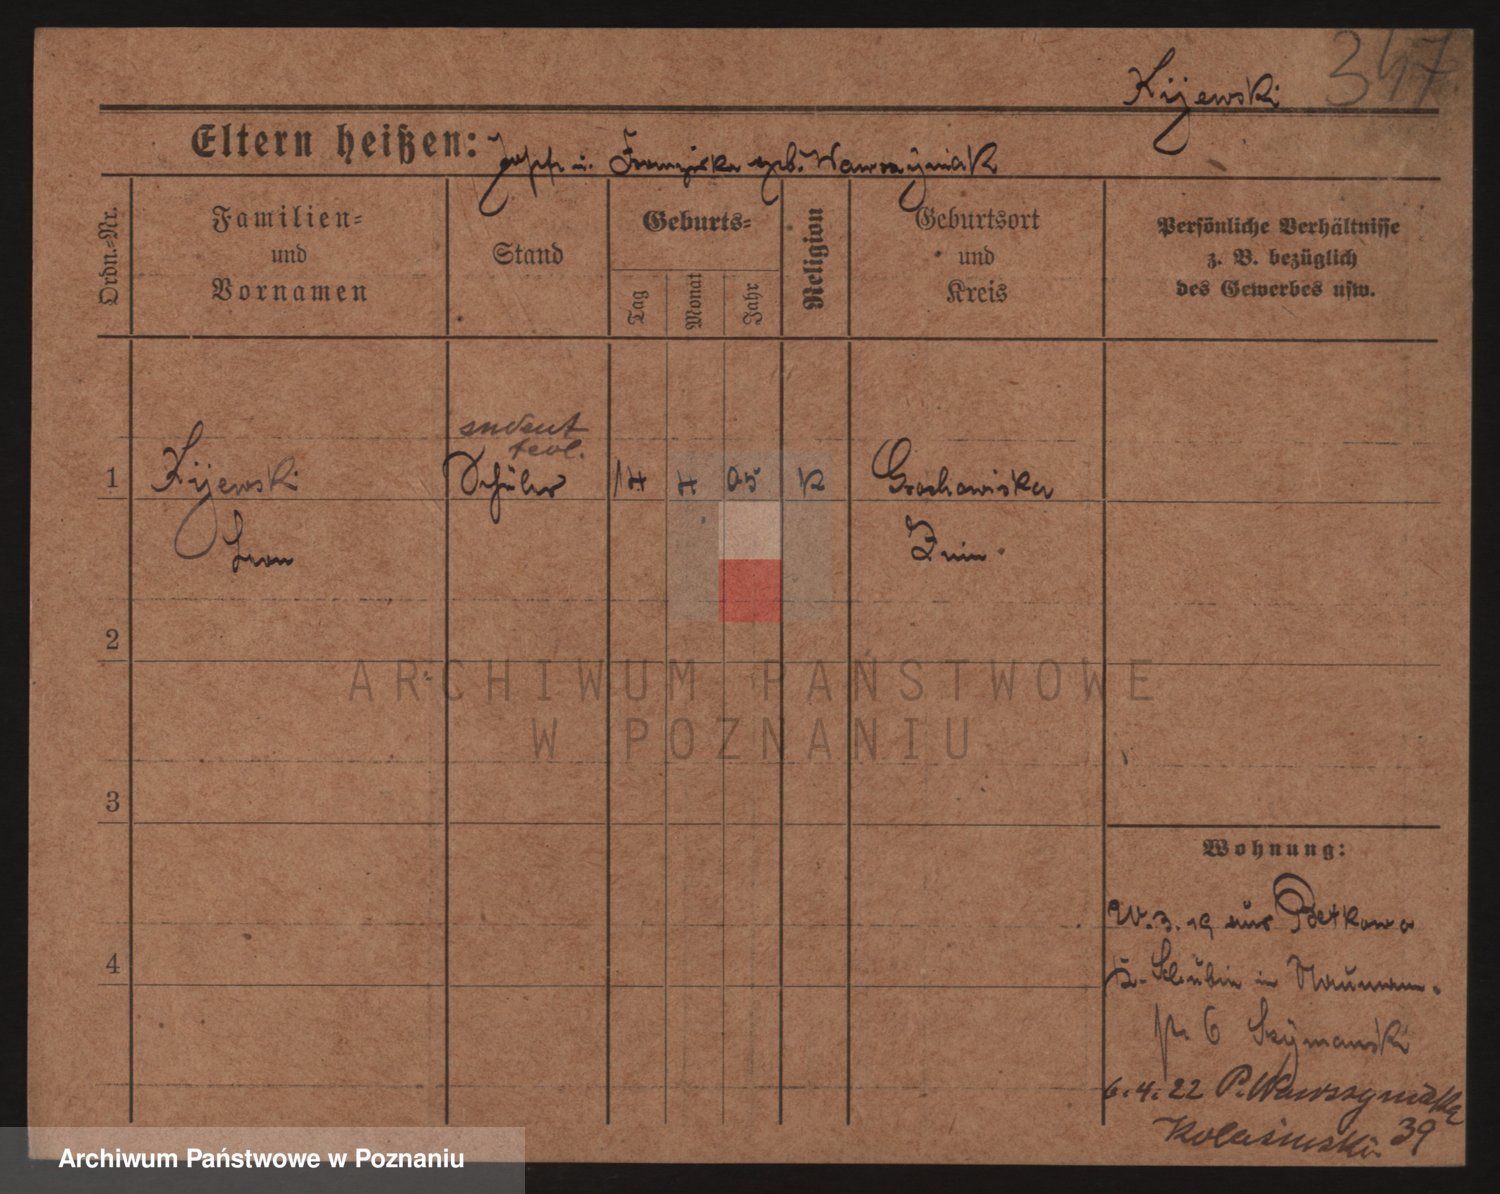 Kijewski 347
Eltern heißen: Josef u. Franziska geb. Wawrzyniak
Ordn.-Nr.
Familien-
und
Vornamen
Stand
Geburts-
Tag
Monat
Jahr
Religion
Geburtsort
und
Kreis
Persönliche Verhältnisse
z. B. bezüglich
des Gewerbes usw.
student
teol.
1 Kijewski Schüler 14 4 05 K Grochowiska
Leon Znin.
2
ARCHIWUM PAŃSTWOWE
W POZNANIU
3
Wohnung:
3. 19 aus
4
Schubin in Naumann-
6 Szymanski
6.4.22 P. Wawrzyniaka
39
Archiwum Państwowe w Poznaniu